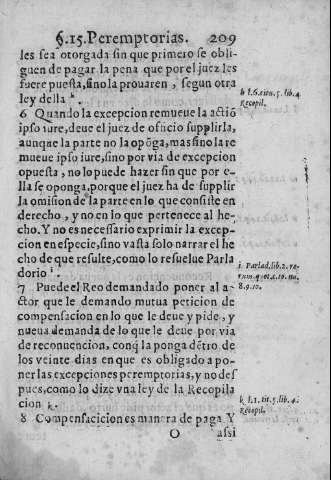 §.15. Peremptorias. 209
les sea otorgada sin que primero se obli-
guen de pagar la pena que por el juez les
fuere puesta, sino la prouaren, segun otra
ley della h.
h l.6. titu. 5. lib. 4.
Recopil.
6 Quando la excepcion remueue la actiõ
ipso iure, deue el juez de oficio suplirla,
aunque la parte no la opõga, mas sino la re
mueue ipso iure, sino por via de excepcion
opuesta, no lo puede hazer sin que por e-
lla se oponga, porque el juez ha de suplir
la omision de la parte en lo que consiste en
derecho, y no en lo que pertenece al he-
cho. Y no es necessario exprimir la excep-
cion en especie, sino vasta solo narrar el he
cho de que resulte, como lo resuelue Parla
dorio i.
i. Parlad. lib. 2. re-
rum quot. c.
8.9.10.
7 Puede el Reo demandado poner al a-
ctor que le demando mutua peticion de
compensacion en lo que le deue y pide, y
nueua demanda de lo que le deue por via
de reconuencion, conq̃ la ponga dẽtro de
los veinte dias en que es obligado a po-
ner las excepciones peremptorias, y no des
pues, como lo dize vna ley de la Recopila
cion k.
k l.1. tit. 5. lib. 4.
Recopil.
8 Compensacicion es manera de paga. Y
O assi